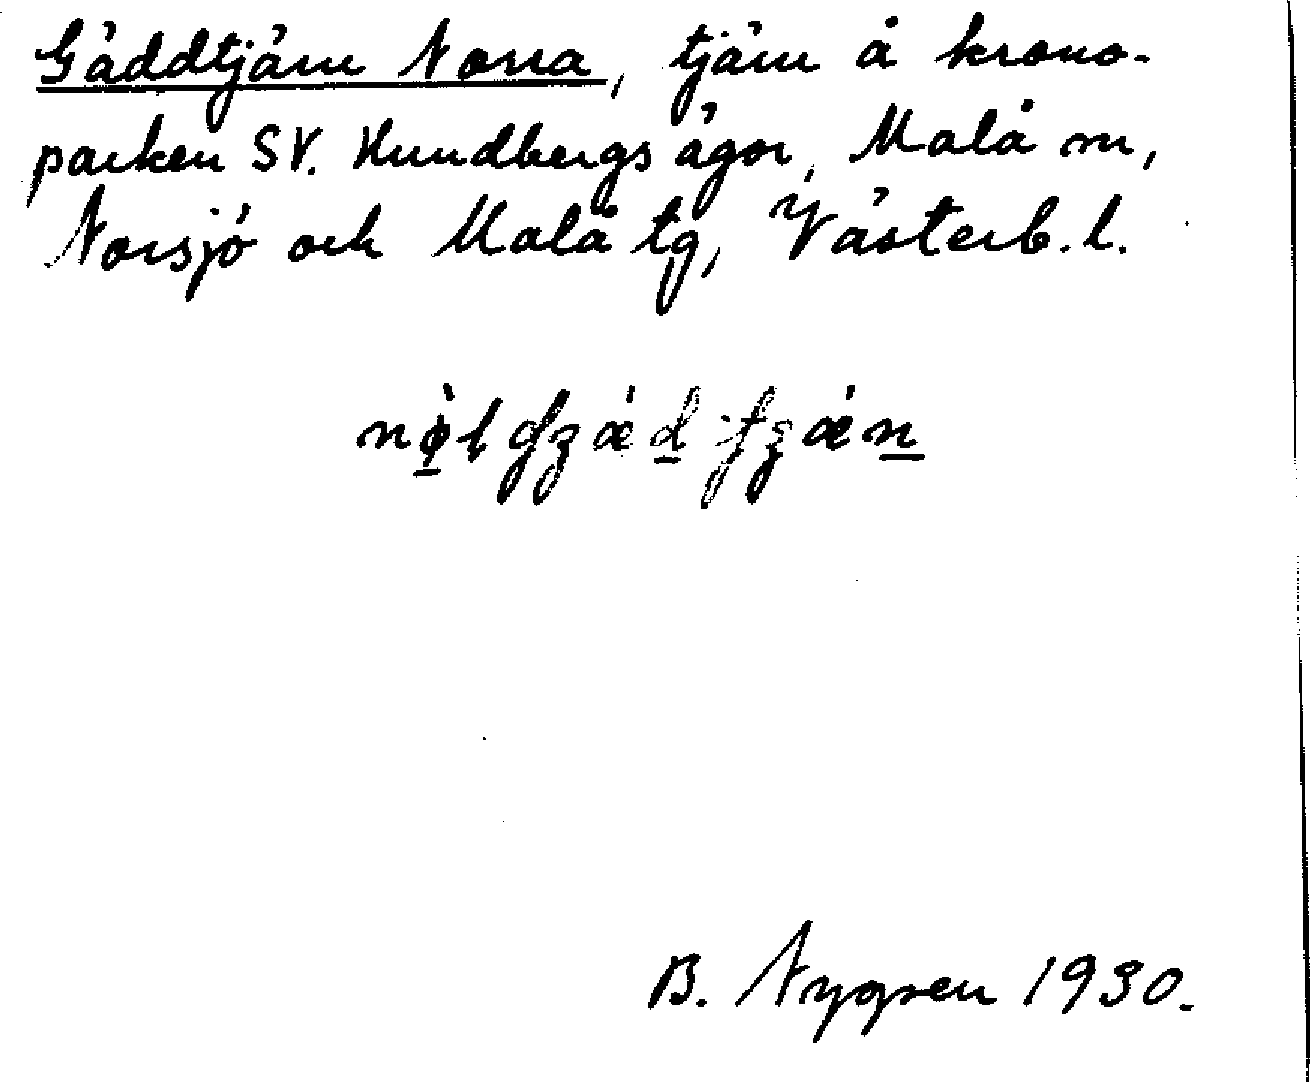 Gäddtjärn Norra, tjärn å krono-
parken SV. Hundbergs ägor, Malå sn,
Norsjö och Malå tg, Västerb. l.
B. Nygren 1930.